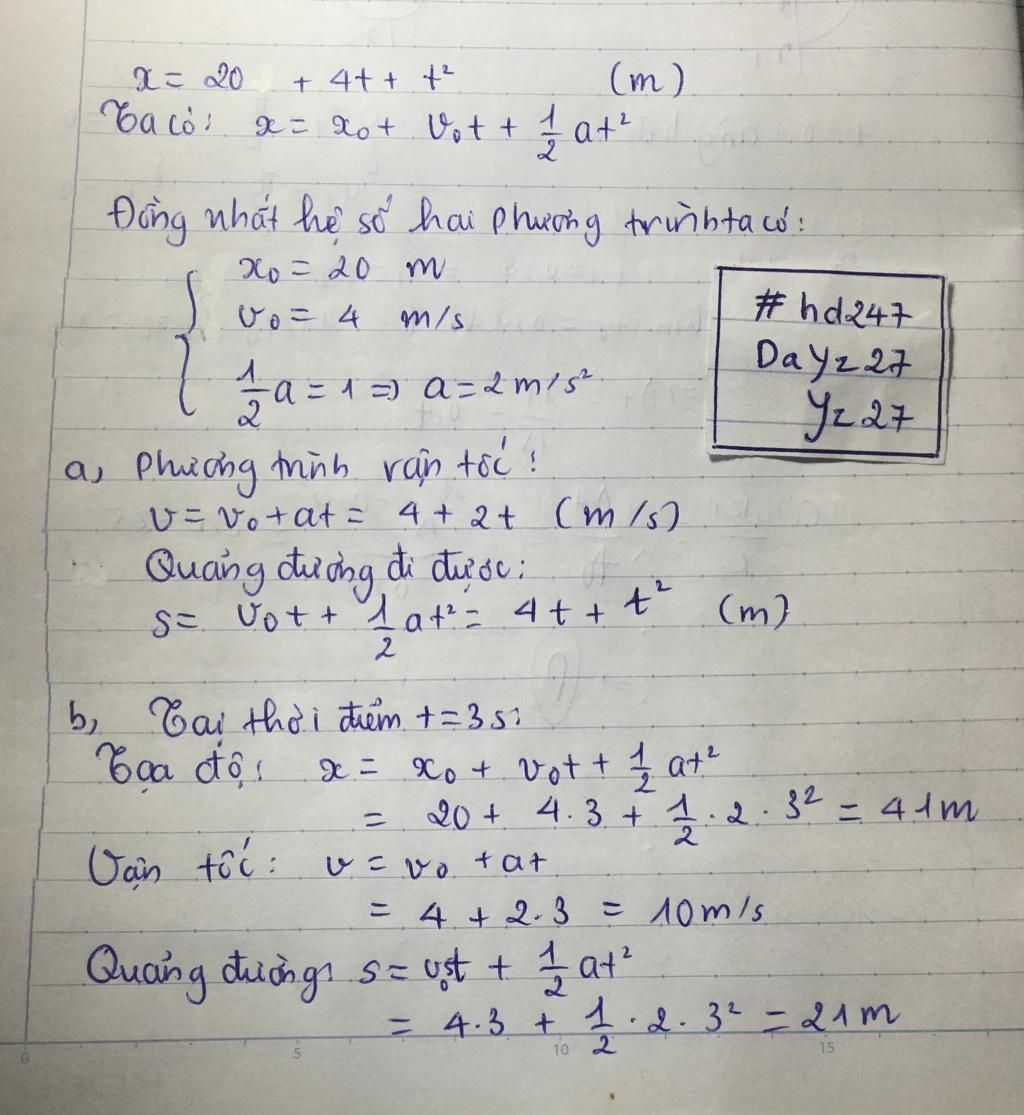 x = 20 + 4t + t² (m)
Ta có: x = x₀ + v₀t + 1/2 at²
Đồng nhất hệ số hai phương trình ta có:
x₀ = 20 m
v₀ = 4 m/s
1/2 a = 1 => a = 2 m/s²
#hd247
DaYz27
Yz27
a, Phương trình vận tốc:
v = v₀ + at = 4 + 2t (m/s)
Quảng đường đi được:
s = v₀t + 1/2 at² = 4t + t² (m)
b, Tại thời điểm t = 3s:
Tọa độ: x = x₀ + v₀t + 1/2 at²
= 20 + 4.3 + 1/2 . 2 . 3² = 41m
Vận tốc: v = v₀ + at
= 4 + 2.3 = 10m/s
Quảng đường: s = v₀t + 1/2 at²
= 4.3 + 1/2 . 2 . 3² = 21m
0 5 10 15